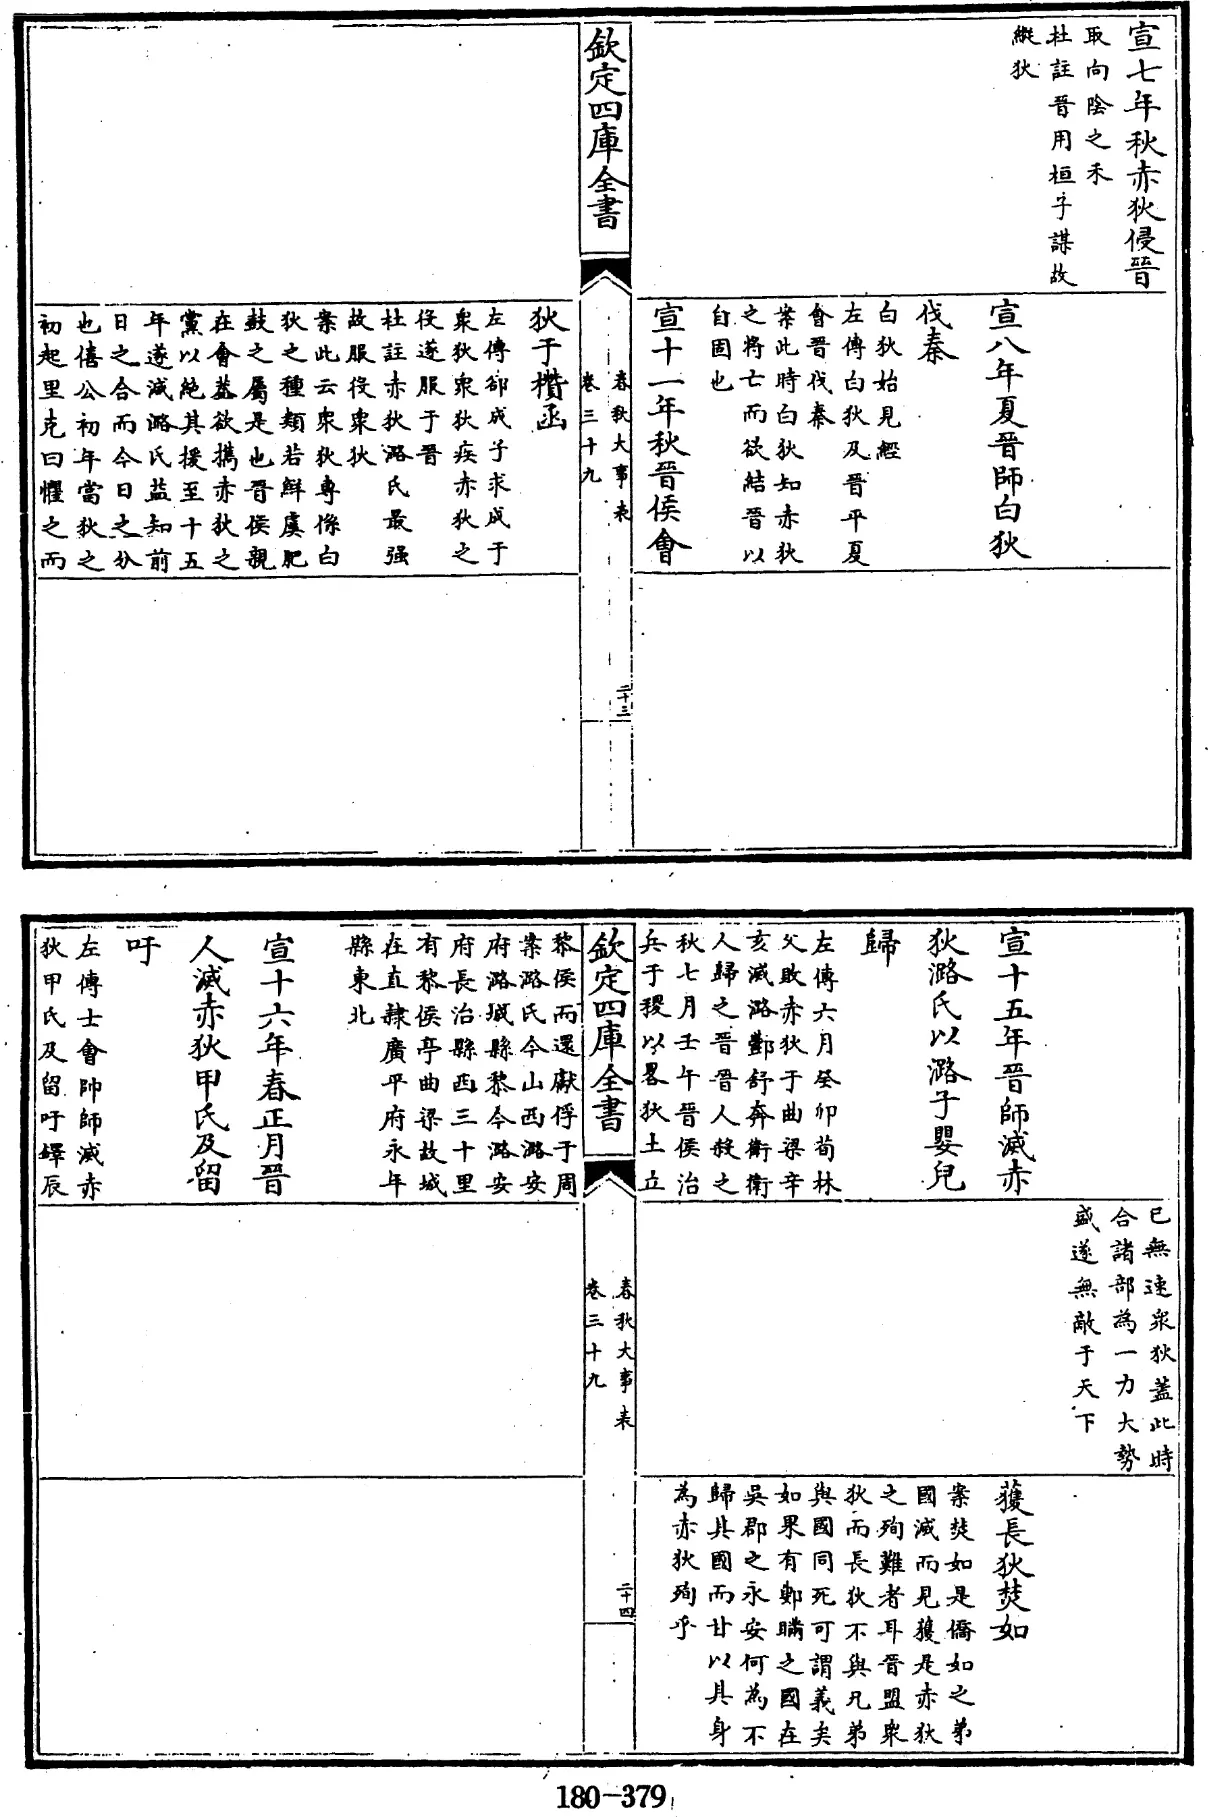 宣七年秋赤狄侵晉
取向陰之禾
杜註晉用桓子謀故
縱狄
宣八年夏晉師白狄
伐秦
白狄始見經
左傳白狄及晉平夏
會晉伐秦
案此時白狄知赤狄
之將亡而欲結晉以
自固也
宣十一年秋晉侯會
欽定四庫全書
春秋大事表
卷三十九
二十三
狄于欑函
左傳郤成子求成于
衆狄衆狄疾赤狄之
役遂服于晉
杜註赤狄潞氏最强
故服役衆狄
案此云衆狄專係白
狄之種類若鮮虞肥
鼓之屬是也晉侯親
在會葢欲攜赤狄之
黨以絶其援至十五
年遂滅潞氏益知前
日之合而今日之分
也僖公初年當狄之
初起里克曰懼之而
宣十五年晉師滅赤
狄潞氏以潞子嬰兒
歸
左傳六月癸卯荀林
父敗赤狄于曲梁辛
亥滅潞酆舒奔衛衛
人歸之晉晉人殺之
秋七月壬午晉侯治
兵于稷以畧狄土立
已無速衆狄蓋此時
合諸部為一力大勢
盛遂無敵于天下
獲長狄焚如
案焚如是僑如之弟
國滅而見獲是赤狄
之殉難者耳晉盟衆
狄而長狄不與兄弟
與國同死可謂義矣
如果有鄋瞞之國在
吳郡之永安何為不
歸其國而甘以其身
為赤狄殉乎
欽定四庫全書
春秋大事表
卷三十九
二十四
黎侯而還獻俘于周
案潞氏今山西潞安
府潞城縣黎今潞安
府長治縣西三十里
有黎侯亭曲梁故城
在直隸廣平府永年
縣東北
宣十六年春正月晉
人滅赤狄甲氏及留
吁
左傳士會帥師滅赤
狄甲氏及留吁鐸辰
180-379